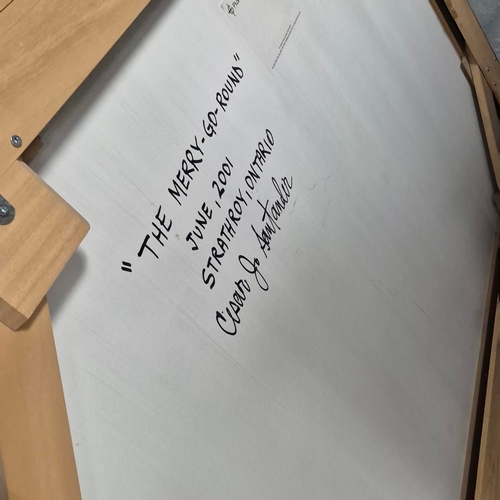 "THE MERRY-GO-ROUND"
JUNE, 2001
STRATHROY, ONTARIO
Cesar Jo Santander